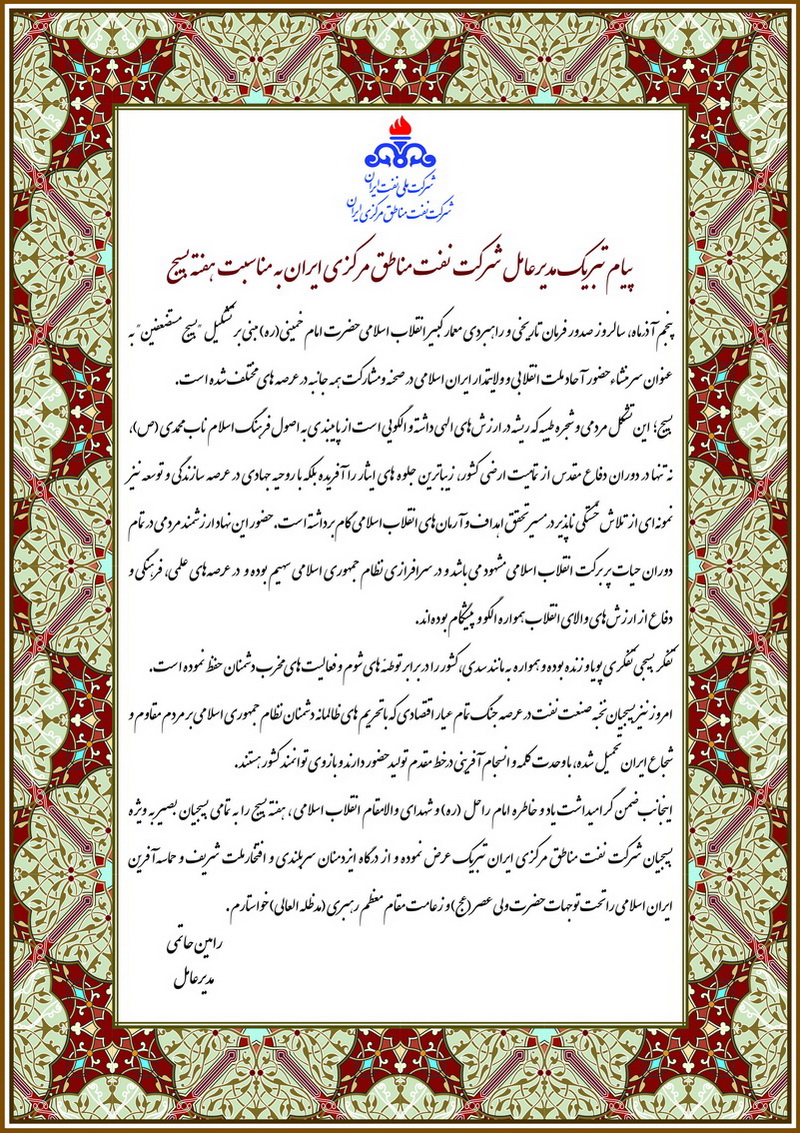 شرکت ملی نفت ایران
شرکت نفت مناطق مرکزی ایران
پیام تبریک مدیرعامل شرکت نفت مناطق مرکزی ایران به مناسبت هفته بسیج
پنجم آذرماه، سالروز صدور فرمان تاریخی و راهبردی معمار کبیر انقلاب اسلامی حضرت امام خمینی(ره) مبنی بر تشکیل "بسیج مستضعفین" به
عنوان سرمنشاء حضور آحاد ملت انقلابی و ولایتمدار ایران اسلامی در صحنه و مشارکت همه جانبه در عرصه های مختلف شده است.
بسیج؛ این تشکل مردمی و شجره طیبه که ریشه در ارزش های الهی داشته و الگویی است از پایبندی به اصول فرهنگ اسلام ناب محمدی (ص)،
نه تنها در دوران دفاع مقدس از تمامیت ارضی کشور، زیباترین جلوه های ایثار را آفریده بلکه با روحیه جهادی در عرصه سازندگی و توسعه نیز
نمونه ای از تلاش خستگی ناپذیر در مسیر تحقق اهداف و آرمان های انقلاب اسلامی گام برداشته است. حضور این نهاد ارزشمند مردمی در تمام
دوران حیات پربرکت انقلاب اسلامی مشهود می باشد و در سرافرازی نظام جمهوری اسلامی سهیم بوده و در عرصه های علمی، فرهنگی و
دفاع از ارزش های والای انقلاب همواره الگو و پیشگام بوده اند.
تفکر بسیجی تفکری پویا و زنده بوده و همواره به مانند سدی، کشور را در برابر توطئه های شوم و فعالیت های مخرب دشمنان حفظ نموده است.
امروز نیز بسیجیان نخبه صنعت نفت در عرصه جنگ تمام عیار اقتصادی که با تحریم های ظالمانه دشمنان نظام جمهوری اسلامی بر مردم مقاوم و
شجاع ایران تحمیل شده، با وحدت کلمه و انسجام آفرینی در خط مقدم تولید حضور دارند و بازوی توانمند کشور هستند.
اینجانب ضمن گرامیداشت یاد و خاطره امام راحل (ره) و شهدای والامقام انقلاب اسلامی، هفته بسیج را به تمامی بسیجیان بصیر به ویژه
بسیجیان شرکت نفت مناطق مرکزی ایران تبریک عرض نموده و از درگاه ایزدمنان سربلندی و افتخار ملت شریف و حماسه آفرین
ایران اسلامی را تحت توجهات حضرت ولی عصر(عج) و زعامت مقام معظم رهبری (مدظله العالی) خواستارم.
رامین حاتمی
مدیرعامل